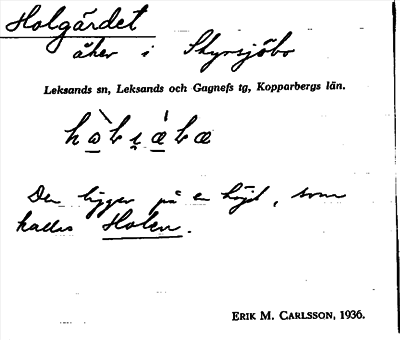 Holgärdet
åker i Styrsjöbo
Leksands sn, Leksands och Gagnefs tg, Kopparbergs län.
Den ligger på en höjd, som
kallas Holen.
ERIK M. CARLSSON, 1936.